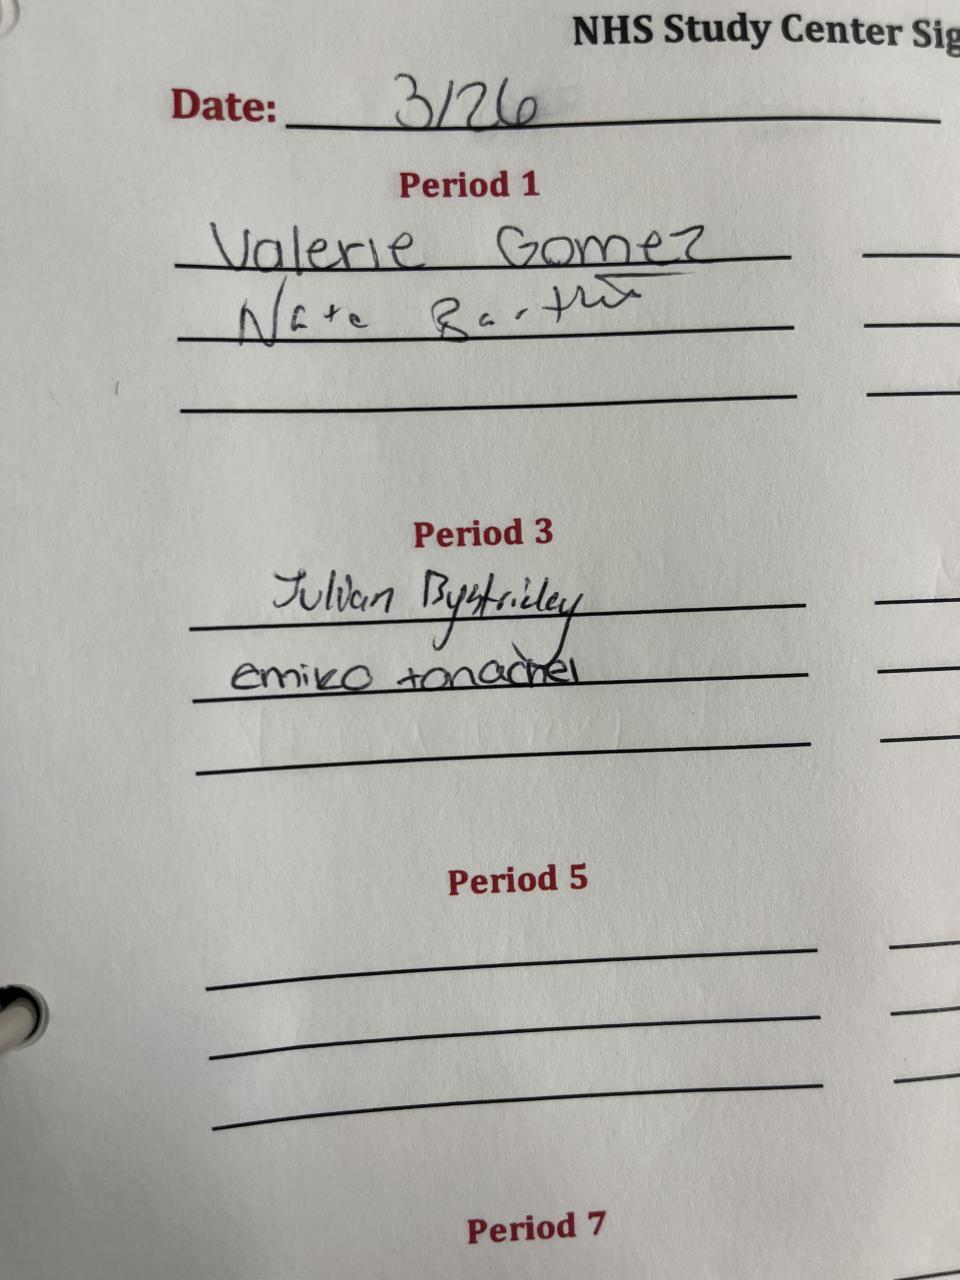 NHS Study Center
Date: 3/26
Period 1
Valerie Gomez
Nate
Period 3
Julian
emiko tonachel
Period 5
Period 7